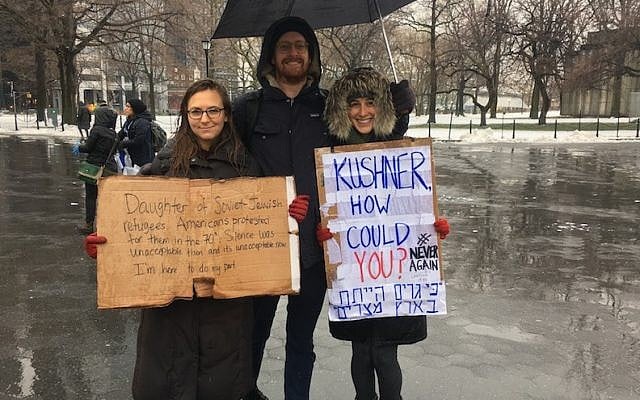 Daughter of Soviet-Jewish
refugees. Americans protested
for them in the 70s. Silence was
unacceptable then and it's unacceptable now
I'm here to do my part
KUSHNER,
HOW
COULD
YOU?
NEVER
AGAIN
כי גרים הייתם
בארץ מצרים